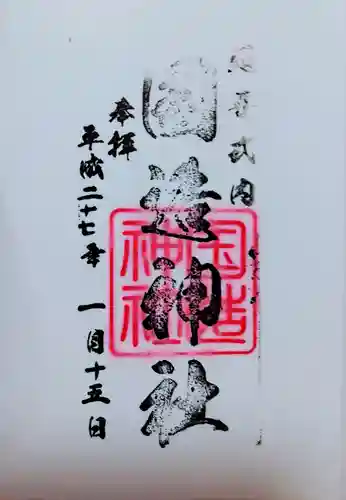 延喜式内
國造神社
奉拝
平成二十七年 一月十五日
国造神社